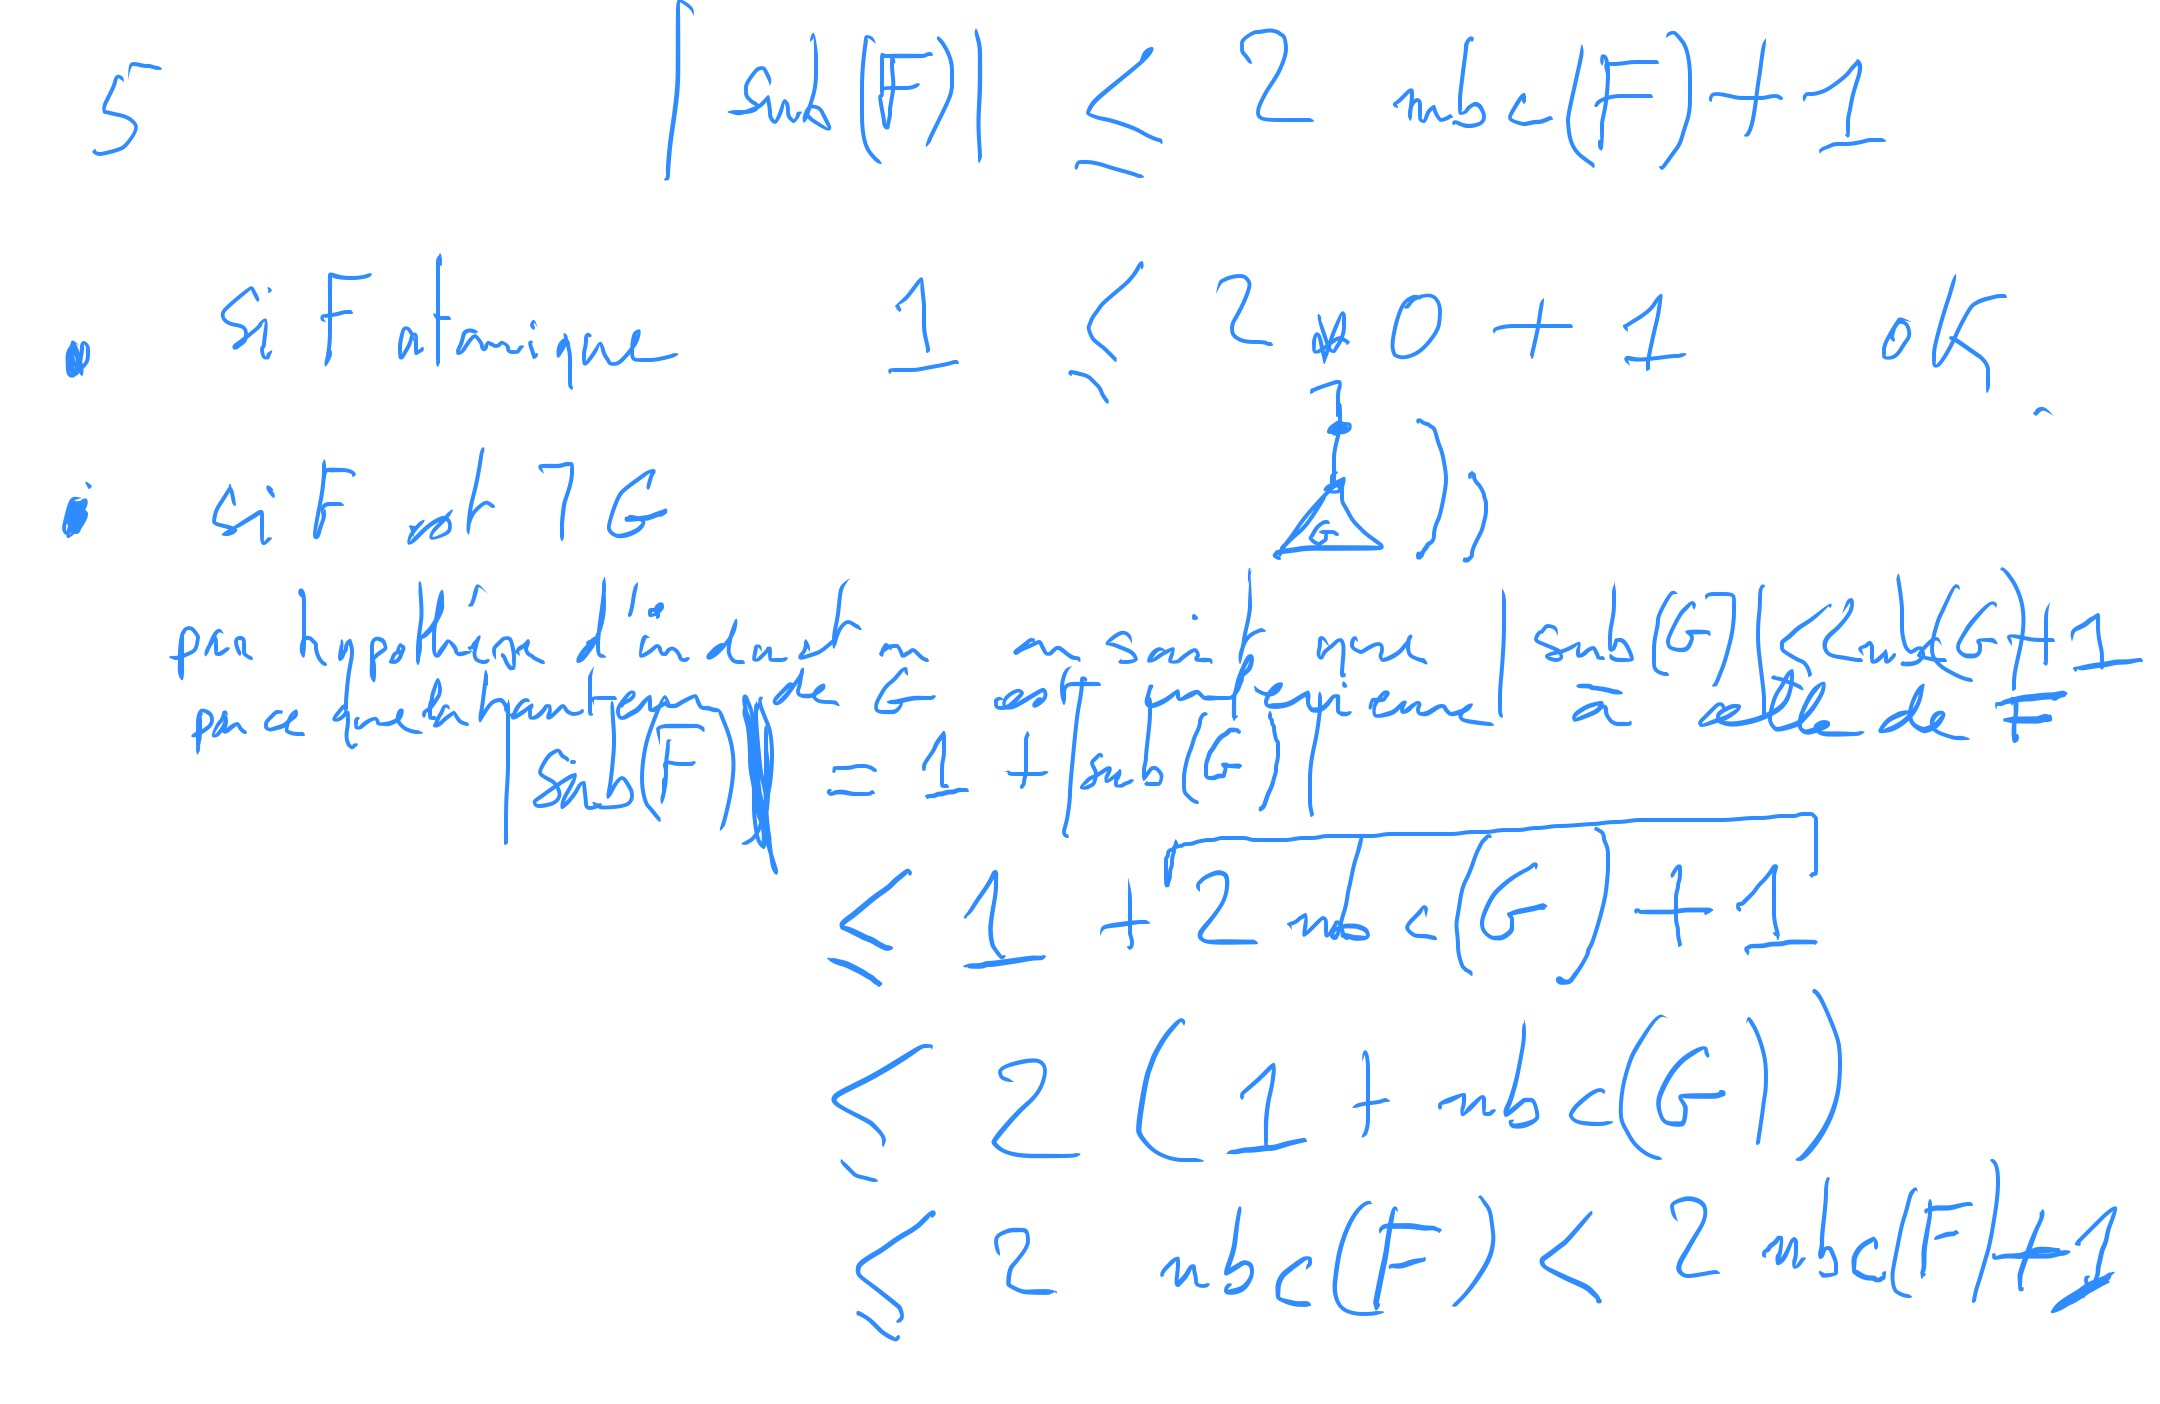 5 |sub(F)| ≤ 2 nbc(F)+1
• si F atomique 1 ≤ 2 * 0 + 1 ok.
• si F est ¬G ¬ G ))
par hypothèse d'induction on sait que |sub(G)| ≤ 2 nbc(G)+1
par ce que la hauteur de G est inférieure à celle de F
|sub(F)| = 1 + |sub(G)|
≤ 1 + 2 nbc(G) + 1
≤ 2 (1 + nbc(G))
≤ 2 nbc(F) < 2 nbc(F)+1